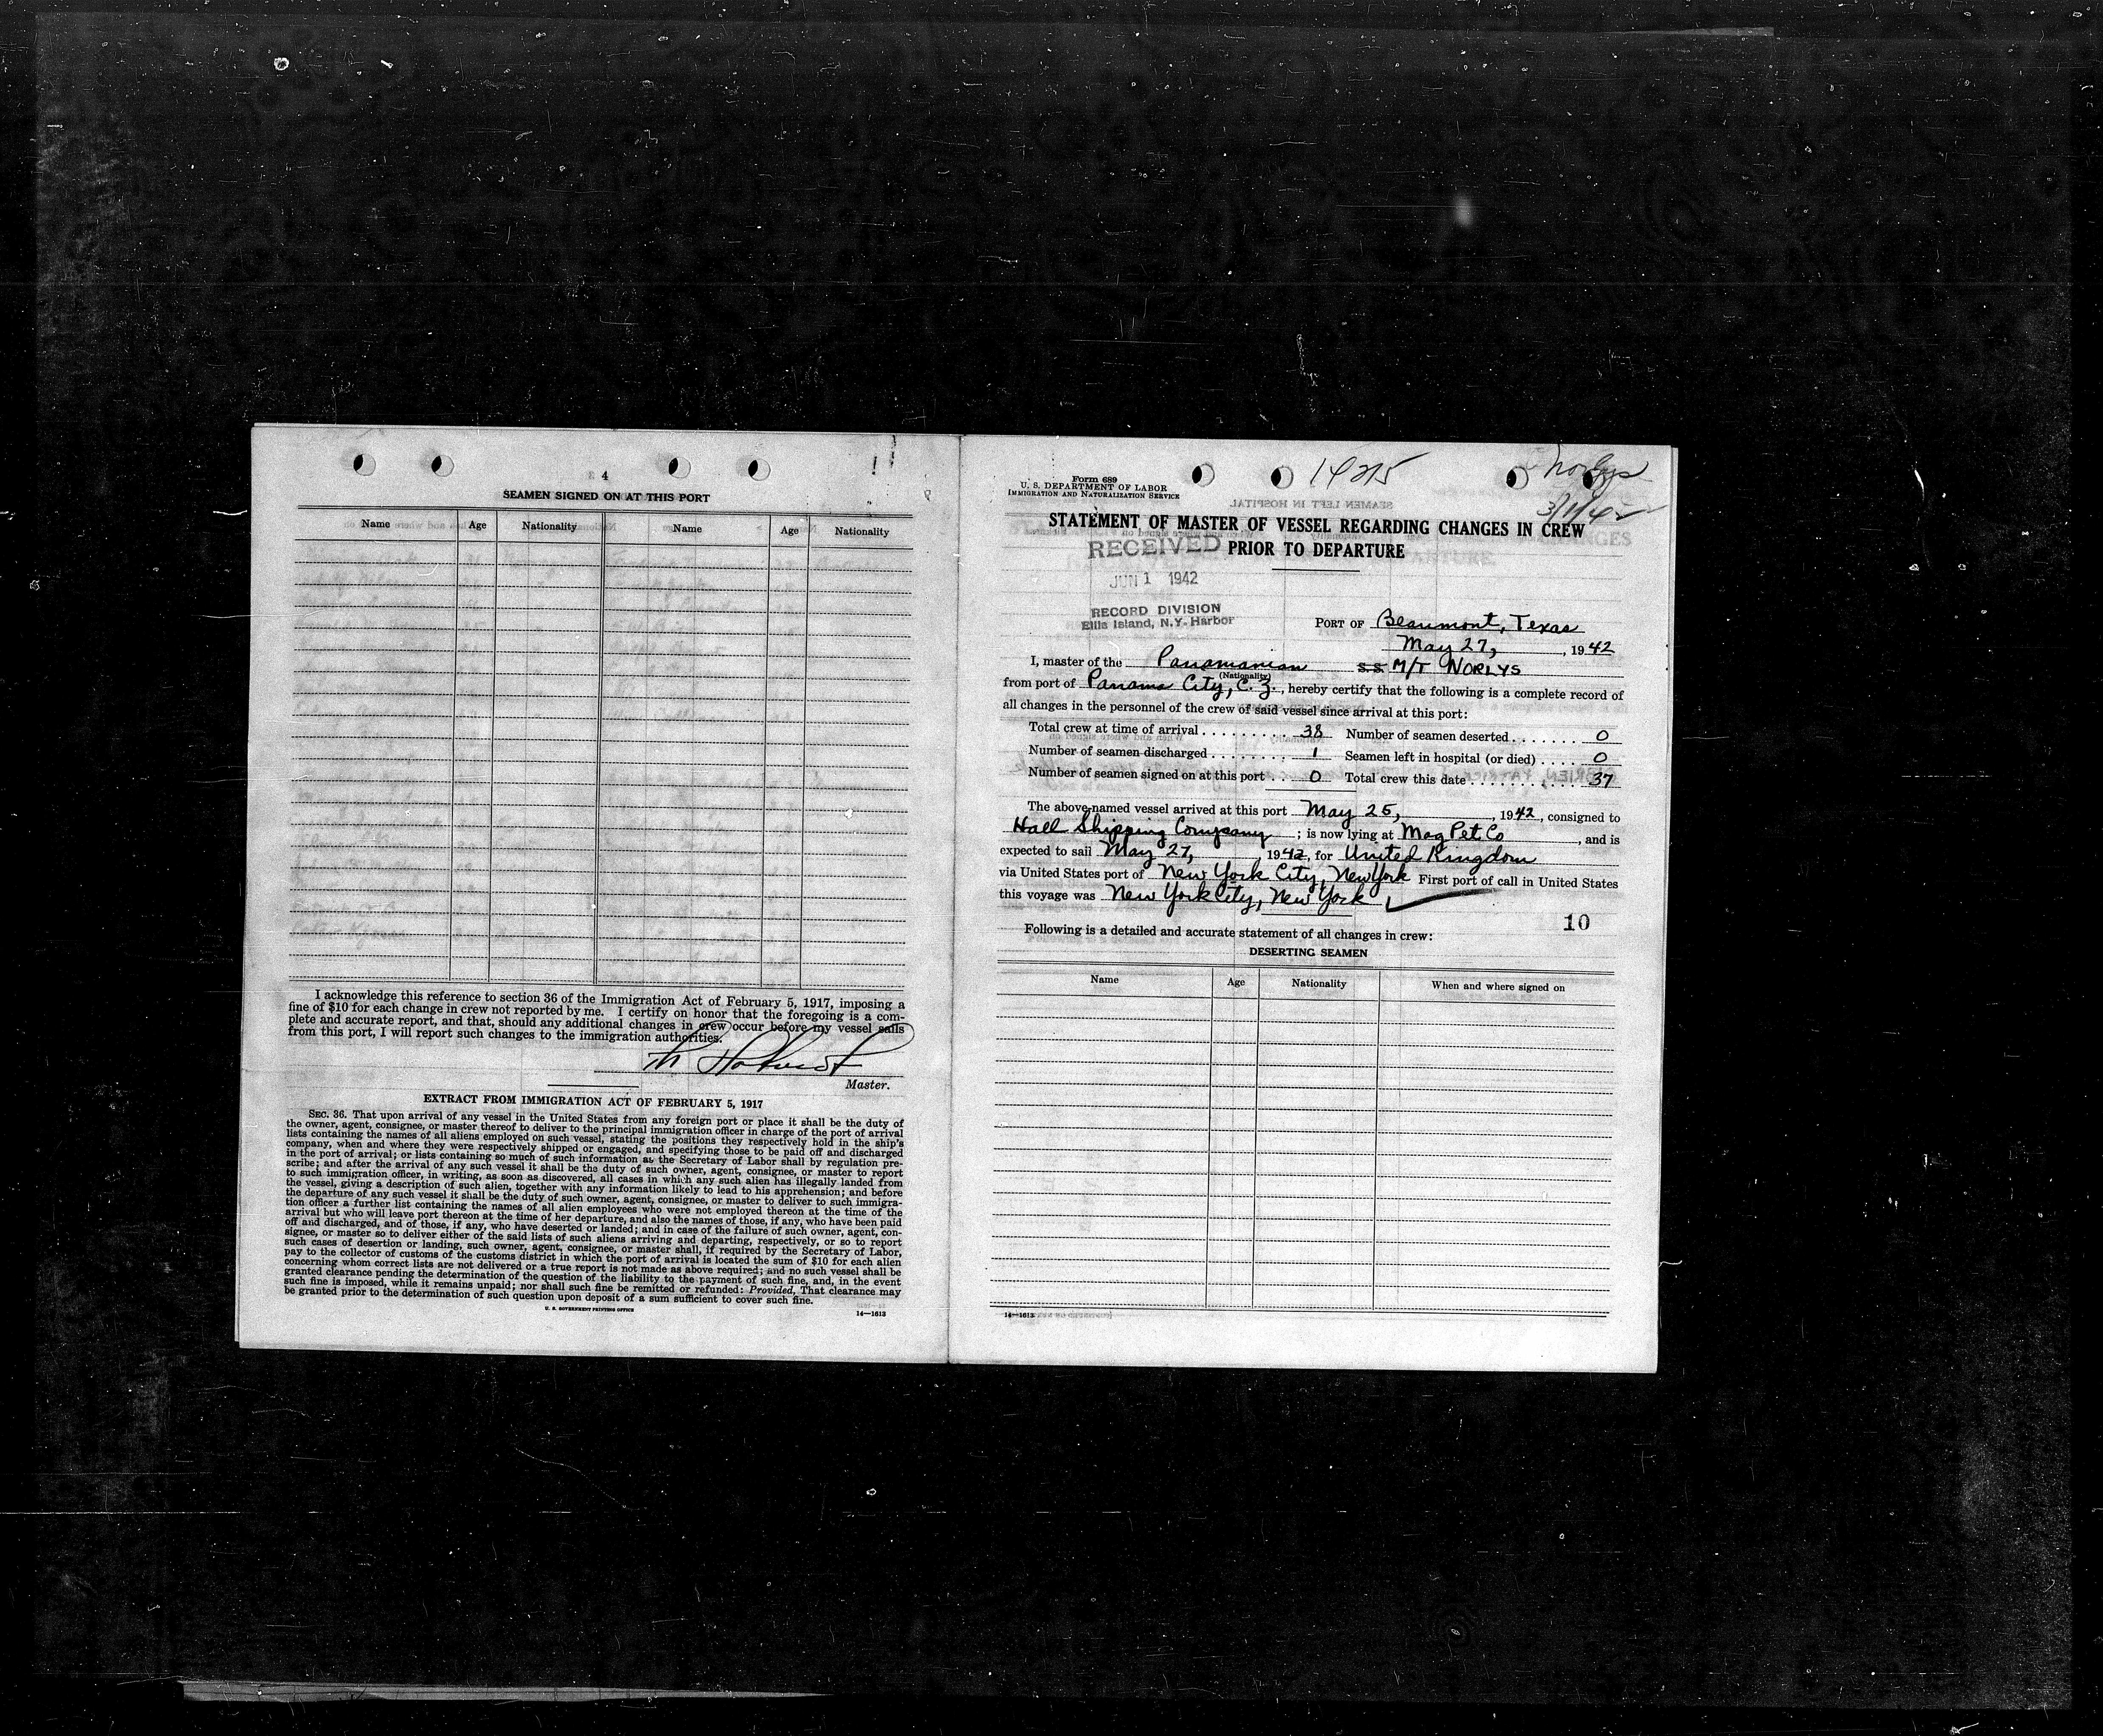 4
SEAMEN SIGNED ON AT THIS PORT
Name Age Nationality Name Age Nationality
I acknowledge this reference to section 36 of the Immigration Act of February 5, 1917, imposing a
fine of $10 for each change in crew not reported by me. I certify on honor that the foregoing is a com-
plete and accurate report, and that, should any additional changes in crew occur before my vessel sails
from this port, I will report such changes to the immigration authorities.
Master.
EXTRACT FROM IMMIGRATION ACT OF FEBRUARY 5, 1917
SEC. 36. That upon arrival of any vessel in the United States from any foreign port or place it shall be the duty of
the owner, agent, consignee, or master thereof to deliver to the principal immigration officer in charge of the port of arrival
lists containing the names of all aliens employed on such vessel, stating the positions they respectively hold in the ship's
company, when and where they were respectively shipped or engaged, and specifying those to be paid off and discharged
in the port of arrival; or lists containing so much of such information as the Secretary of Labor shall by regulation pre-
scribe; and after the arrival of any such vessel it shall be the duty of such owner, agent, consignee, or master to report
to such immigration officer, in writing, as soon as discovered, all cases in which any such alien has illegally landed from
the vessel, giving a description of such alien, together with any information likely to lead to his apprehension; and before
the departure of any such vessel it shall be the duty of such owner, agent, consignee, or master to deliver to such immigra-
tion officer a further list containing the names of all alien employees who were not employed thereon at the time of the
arrival but who will leave port thereon at the time of her departure, and also the names of those, if any, who have been paid
off and discharged, and of those, if any, who have deserted or landed; and in case of the failure of such owner, agent, con-
signee, or master so to deliver either of the said lists of such aliens arriving and departing, respectively, or so to report
such cases of desertion or landing, such owner, agent, consignee, or master shall, if required by the Secretary of Labor,
pay to the collector of customs of the customs district in which the port of arrival is located the sum of $10 for each alien
concerning whom correct lists are not delivered or a true report is not made as above required; and no such vessel shall be
granted clearance pending the determination of the question of the liability to the payment of such fine, and, in the event
such fine is imposed, while it remains unpaid; nor shall such fine be remitted or refunded: Provided, That clearance may
be granted prior to the determination of such question upon deposit of a sum sufficient to cover such fine.
U. S. GOVERNMENT PRINTING OFFICE
14—1613
Form 689
U. S. DEPARTMENT OF LABOR
IMMIGRATION AND NATURALIZATION SERVICE
Norlys
3/1/42
STATEMENT OF MASTER OF VESSEL REGARDING CHANGES IN CREW
PRIOR TO DEPARTURE
RECEIVED
JUN 1 1942
RECORD DIVISION
Ellis Island, N.Y. Harbor
PORT OF Beaumont, Texas
May 27, , 1942
I, master of the Panamanian SS M/T NORLYS
(Nationality)
from port of Panama City, C. Z. , hereby certify that the following is a complete record of
all changes in the personnel of the crew of said vessel since arrival at this port:
Total crew at time of arrival . . . . . . . . . 38 Number of seamen deserted . . . . . . . 0
Number of seamen discharged . . . . . . . 1 Seamen left in hospital (or died) . . . . 0
Number of seamen signed on at this port . . . 0 Total crew this date . . . . . . . . . . 37
The above-named vessel arrived at this port May 25, , 1942, consigned to
Hall Shipping Company ; is now lying at Mag Pet Co , and is
expected to sail May 27, , 1942, for United Kingdom
via United States port of New York City, New York First port of call in United States
this voyage was New York City, New York
10
Following is a detailed and accurate statement of all changes in crew:
DESERTING SEAMEN
Name Age Nationality When and where signed on
14—1613